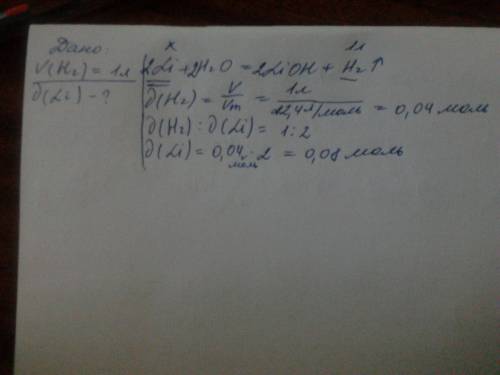 Дано:
V(H₂) = 1л
∂(Li) - ?
x 1л
2Li + 2H₂O = 2LiOH + H₂↑
∂(H₂) = V/Vm = 1л/22,4л/моль = 0,04 моль
∂(H₂) : ∂(Li) = 1:2
∂(Li) = 0,04 моль · 2 = 0,08 моль